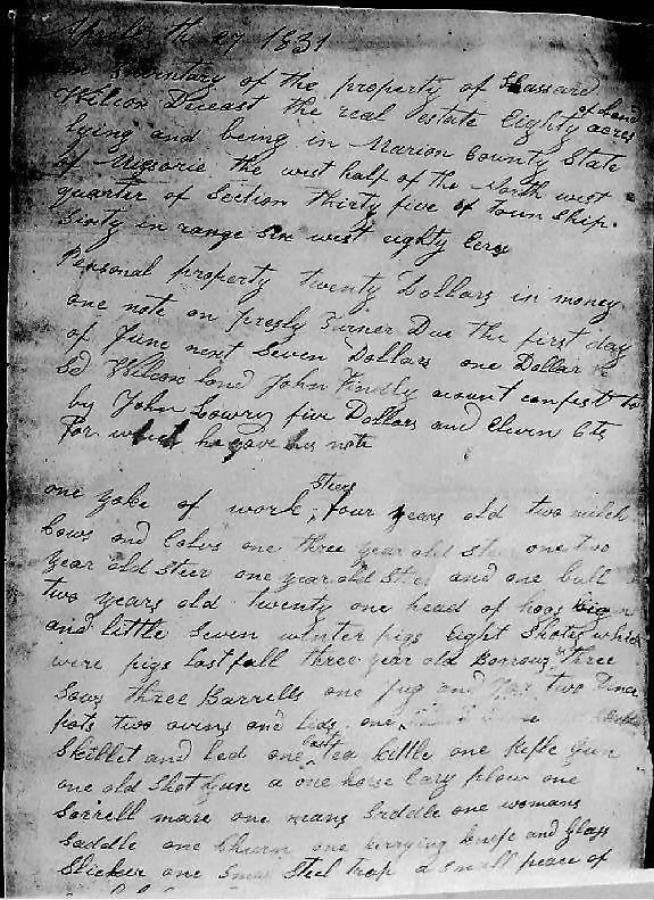 Aprile th 27 1831
an Inventary of the property of Hassard
Wilcox Deceast the real estate Eighty acres of land
lying and being in Marion County State
of Missorie the west half of the North west
quarter of Section thirty five of Town Ship
Sixty in range Six west eighty Acres
Personal property twenty Dollars in money
one note on Presly Turner Due the first day
of June next Seven Dollars one Dollar
Sd Wilcox land John Findly acount confest to
by John Lowry five Dollars and Eleven Cts
For which he gave his note
one yoke of work Steers, four years old two milch
Cows and Calvs one three year old steer one two
year old Steer one year old Steer and one bull
two years old twenty one head of hogs big
and little Seven winter pigs Eight Shotes which
were pigs last fall three year old Borrows three
Sows three Barrells one Jug and two Diner
pots two ovins and leds one
Skillet and led one cast tea kittle one Rifle Gun
one old Shot Gun a one horse Cary plow one
Sorrell mare one means Saddle one womans
Saddle one Churn one currying knife and Glass
Slicker one Small Steel trap a small peace of